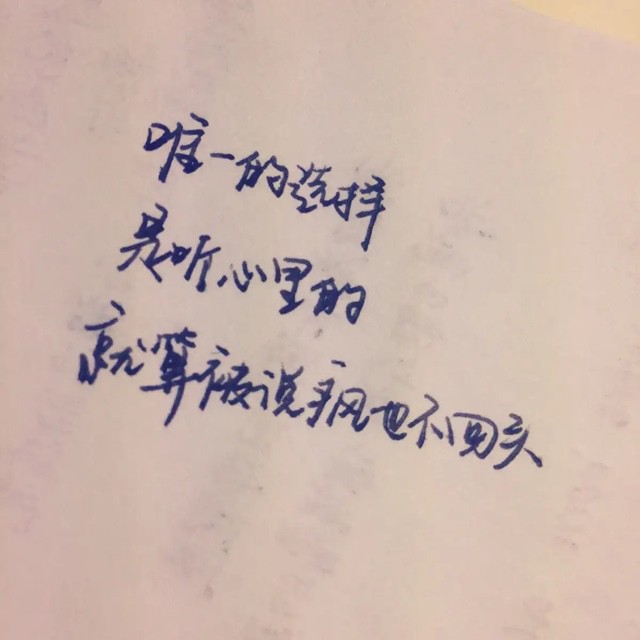 唯一的选择
是听心里的
就算被说疯也不回头